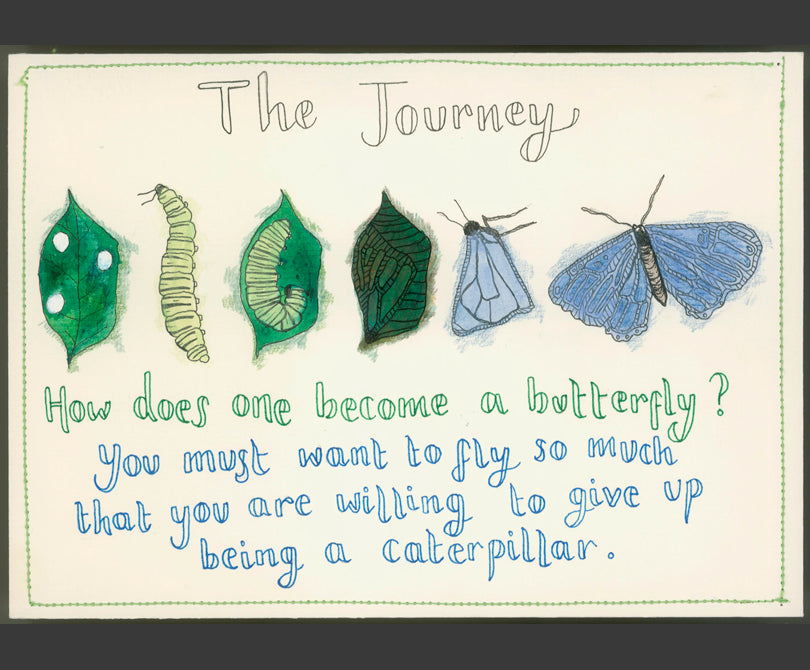 The Journey
How does one become a butterfly?
You must want to fly so much
that you are willing to give up
being a caterpillar.